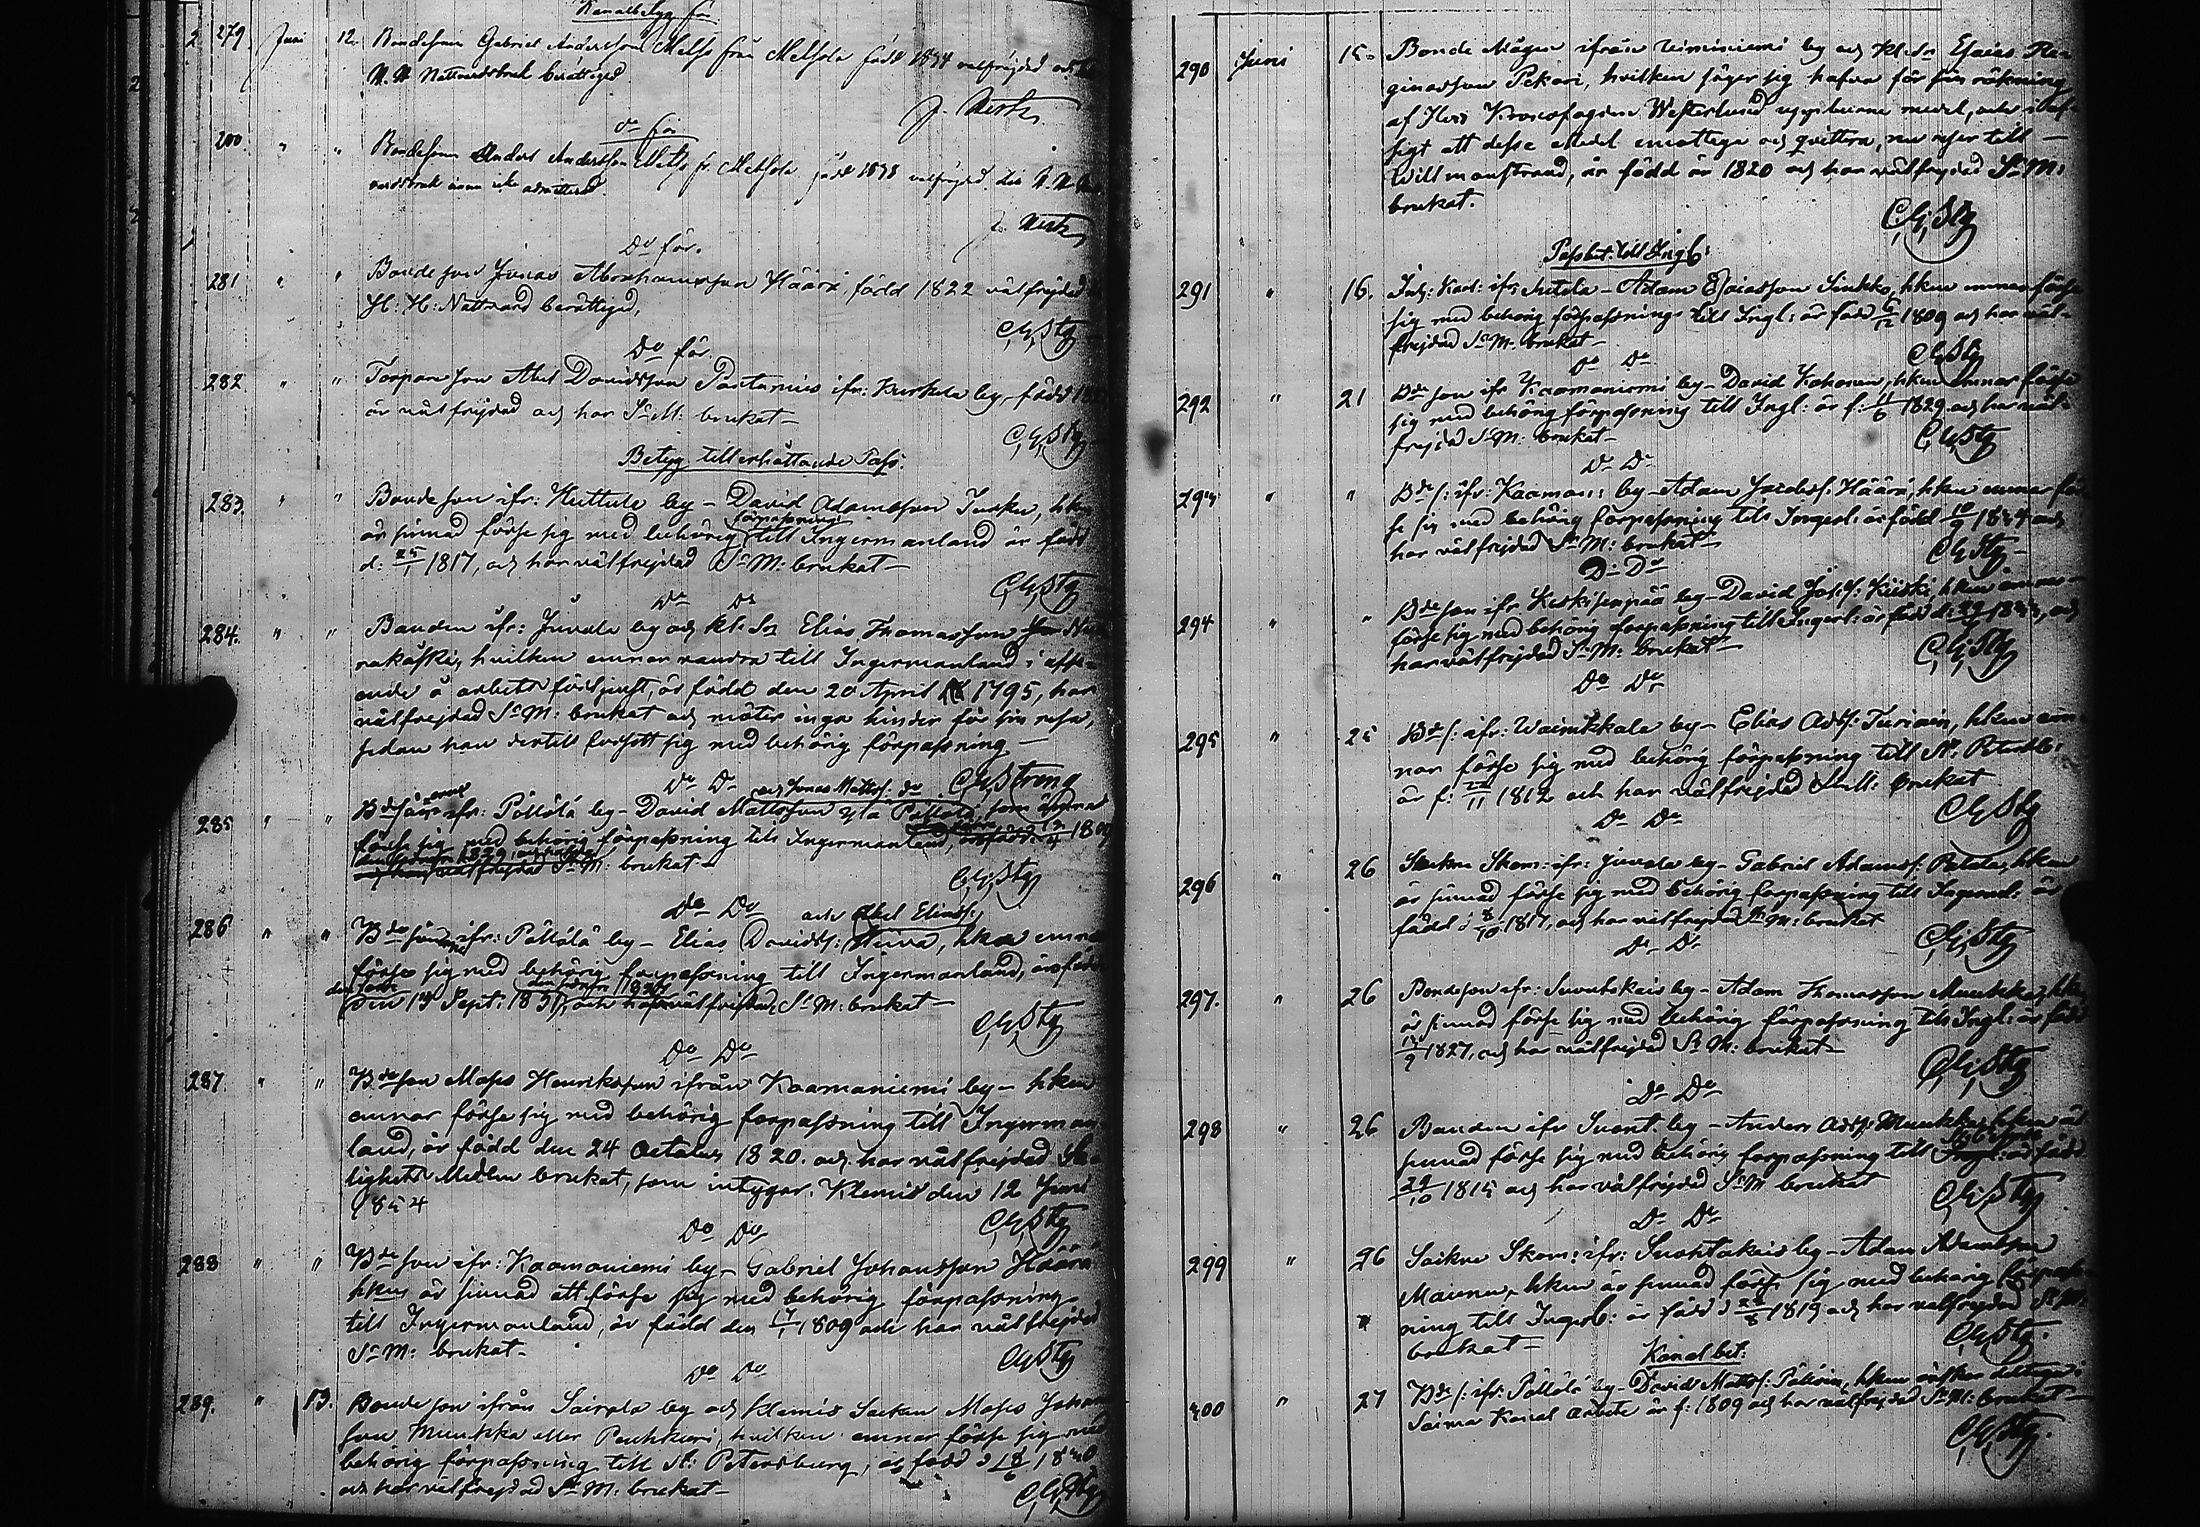 Kanalbetyg för
279. Juni 12. Bondesonen Gabriel Andersson Mells från Metsola född 1834 välfrejdad och
H. H. Nattvardsbruk berättigad
J. Nerk
280. " " do för
Bondesonen Anders Andersson Mells fr. Metsola född 1838 välfrejdad till H. H.
vardsbruk ännu icke admitterad
J. Nerk
Do för.
281 " " Bondeson Jonas Abrahamsson Häärä, född 1822 välfrejdad
H: H: Nattvard berättigad,
C,G,Stg
Do för.
282 " " Torpareson Abel Davidsson Pontinnius ifr: Kurkela by, född
är välfrejdad och har S: M: brukat–
C,G,Stg
Betyg till erhållande Pass.
283. " " Bondeson ifr: Huttula by – David Adamsson Turku, hken
är sinnad förse sig med behörig förpassning till Ingermanland är född
d: 25/1 1817, och har välfrejdad S: M: brukat–
C,G,Stg
Do Do
284. " " Bonden ifr: Juvala by och Kl: Sn Elias Thomasson
nakäski, hvilken ämnar vandra till Ingermanland i affse-
ende å arbets förtjenst, är född den 20 April 1795, har
välfrejdad S: M: brukat och möter inga hinder för sin resa,
sedan han dertill försett sig med behörig förpassning –
C,G,Strong
Do Do och Jonas Mattss: do
285 " " Bdesöner ifr: Pöllölä by – David Mattsson Pöllölä, som ämnar
förse sig med behörig förpassning till Ingermanland, 12/4 1809
och har välfrejdad S: M: brukat–
C,G,Stg
Do Do och Abel Eliass:
286 " " Bdesönerne ifr: Pöllölä by – Elias Davidss: Hiiva, hka ämna
förse sig med behörig förpassning till Ingermanland, äro född
den 14 Sept: 1831, och välfrejdad, S: M: brukat–
C,G,Stg
Do Do
287 " " Bdeson Moses Henriksson ifrån Kaamaniemi by – hken
ämnar förse sig med behörig förpassning till Ingerman-
land, är född den 24 October 1820. och har välfrejdad Sa-
lighets Medlen brukat, som intygar. Klemis den 12 Juni
1854
C,G,Stg
Do Do
288 " " Bdeson ifr: Kaamaniemi by – Gabriel Johansson Häärä
hken är sinnad att förse sig med behörig förpassning
till Ingermanland, är född den 17/1 1809 och har välfrejdad
S: M: brukat–
C,G,Stg
Do Do
289. " 13. Bondeson ifrån Sairala by och Klemis Socken Moses Johans-
son Munkka eller Peuhkuri, hvilken ämnar förse sig med
behörig förpassning till St: Petersburg, är född d 18/6 1830
och har välfrejdad S: M: brukat–
C,G,Stg
290 Juni 15. Bonde Mågen ifrån Niininiemi by och Kl: Sn Esaias Re-
ginasson Pekari, hvilken säger sig hafva för sin räkning
af Herr Kronofogden Westerlund uppburne medel, och i af-
sigt att desse Medel emottaga och qvittera, nu reser till
Willmanstrand, är född år 1820 och har välfrejdad S: M:
brukat.
C,G,Stg
Passbet. till Ingl:
291 " 16. Inh: Karl: ifr: Autola – Adam Esaiasson Sinkko, hken ämnar förse
sig med behörig förpassning till Ingl: är född 6/12 1809 och har väl-
frejdad S: M: brukat–
C,G,Stg
Do Do
292 " 21 Bdeson ifr Kaamaniemi by – David Kahonen, hken ämnar förse
sig med behörig förpassning till Ingl: är f: 11/6 1829 och har väl-
frejdad S: M: brukat–
C,G,Stg
Do Do
293 " " Bde s: ifr: Kaaman: by – Adam Jacobss: Häärä, hken ämnar för-
se sig med behörig förpassning till Ingerl: är född 10/9 1834 och
har välfrejdad S: M: brukat–
C,G,Stg
Do Do
294 " " Bdeson ifr Keskisenpää by – David Jos: s: Kiiski, hken ämnar
förse sig med behörig förpassning till Ingerl: är född d: 22/ 1833, och
har välfrejdad S: M: brukat–
C,G,Stg
Do Do
295 " 25 Bde s: ifr: Wainikkala by – Elias Adss: Turiain, hken äm-
nar förse sig med behörig förpassning till St: Petersb:
är f: 22/11 1812 och har välfrejdad S: M: brukat
C,G,Stg
Do Do
296 " 26 Sockne Skom: ifr: Juvala by – Gabriel Adamss: Patala, hken
är sinnad förse sig med behörig förpassning till Ingerml: är
född d 8/10 1817, och har välfrejdad S: M: brukat
C,G,Stg
Do Do
297. " 26 Bondeson ifr: Suontakais by – Adam Thomasson Munkka, hken
är sinnad förse sig med behörig förpassning till Ingl: är född
17/9 1827, och har välfrejdad S: M: brukat–
C,G,Stg
Do Do
298 " 26 Bonden ifr Suont. by – Anders Adss: Munkka, hken är
sinnad förse sig med behörig förpassning till Ingl: är född
29/10 1815 och har välfrejdad S: M: brukat
C,G,Stg
Do Do
299 " 26 Sockne Skom: ifr: Suontakais by – Adam Adamsson
Mainen, hken är sinnad förse sig med behörig förpass-
ning till Ingerl: är född d 28/8 1819 och har välfrejdad S: M:
brukat–
C,G,Stg.
Kanal bet:
300 " 27 Bde s: ifr: Pöllölä by – David Matts: Pöllöin, hken önskar deltaga i
Saima Kanal arbete är f: 1809 och har välfrejdad S: M: brukat–
C,G,Stg.